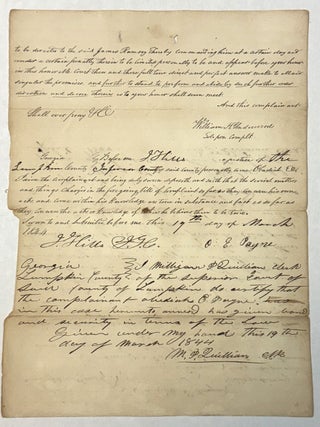 to be directed to the said James Ramsey thereby commanding him at a certain day and
under a certain penalty therein to be limited personally to be and appear before your honor
in this honorable Court then and there full true direct and perfect answer make to all and
singular the premises and further to stand to perform and abide by such further order
direction and decree therein as to your honor shall seem meet
And this complainant
Shall ever pray &C
William H Underwood
Sol. for Complt
Georgia
By Before me J J Hills a justice of the
said County personally came Obadiah E
the complainant and being duly sworn
and things charged in the foregoing bill
acts and come within his knowledge are true in substance and fact and so far as
they the knowledge of others he believes them to be true.
Sworn to and subscribed before me this 19th day of March
1844
J J Hills J. I. C. O E Payne
Georgia I Milligan F Quillian Clerk
Lumpkin County of the Superior Court of
County of Lumpkin do certify that
the complainant Obediah E Payne,
in this case hereunto annexed has given bond
and security in terms of the Law
Given under my hand this 19th
day of March 1844
M. F. Quillian Clk